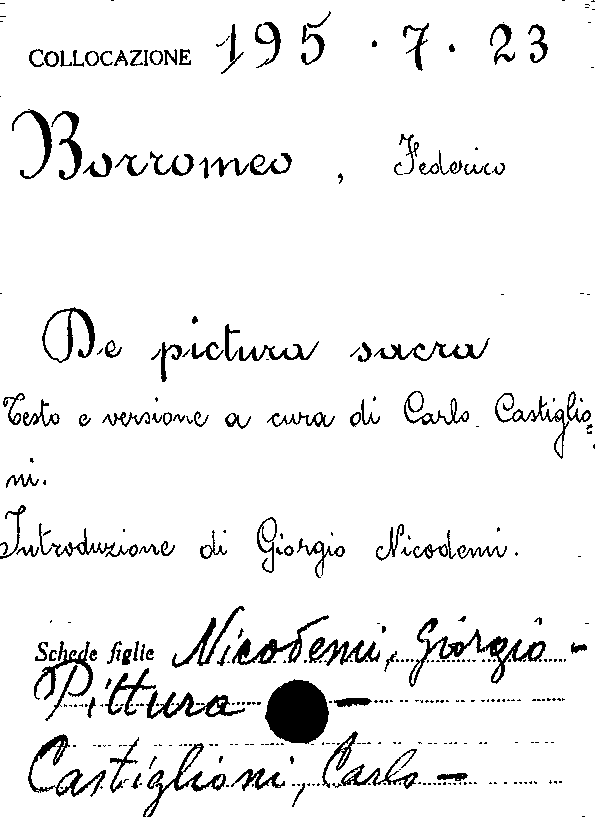 COLLOCAZIONE 195 . 7 . 23
Borromeo , Federico
De pictura sacra
Testo e versione a cura di Carlo Castiglio=
ni.
Introduzione di Giorgio Nicodemi.
Schede figlie Nicodemi, Giorgio -
Pittura -
Castiglioni, Carlo -